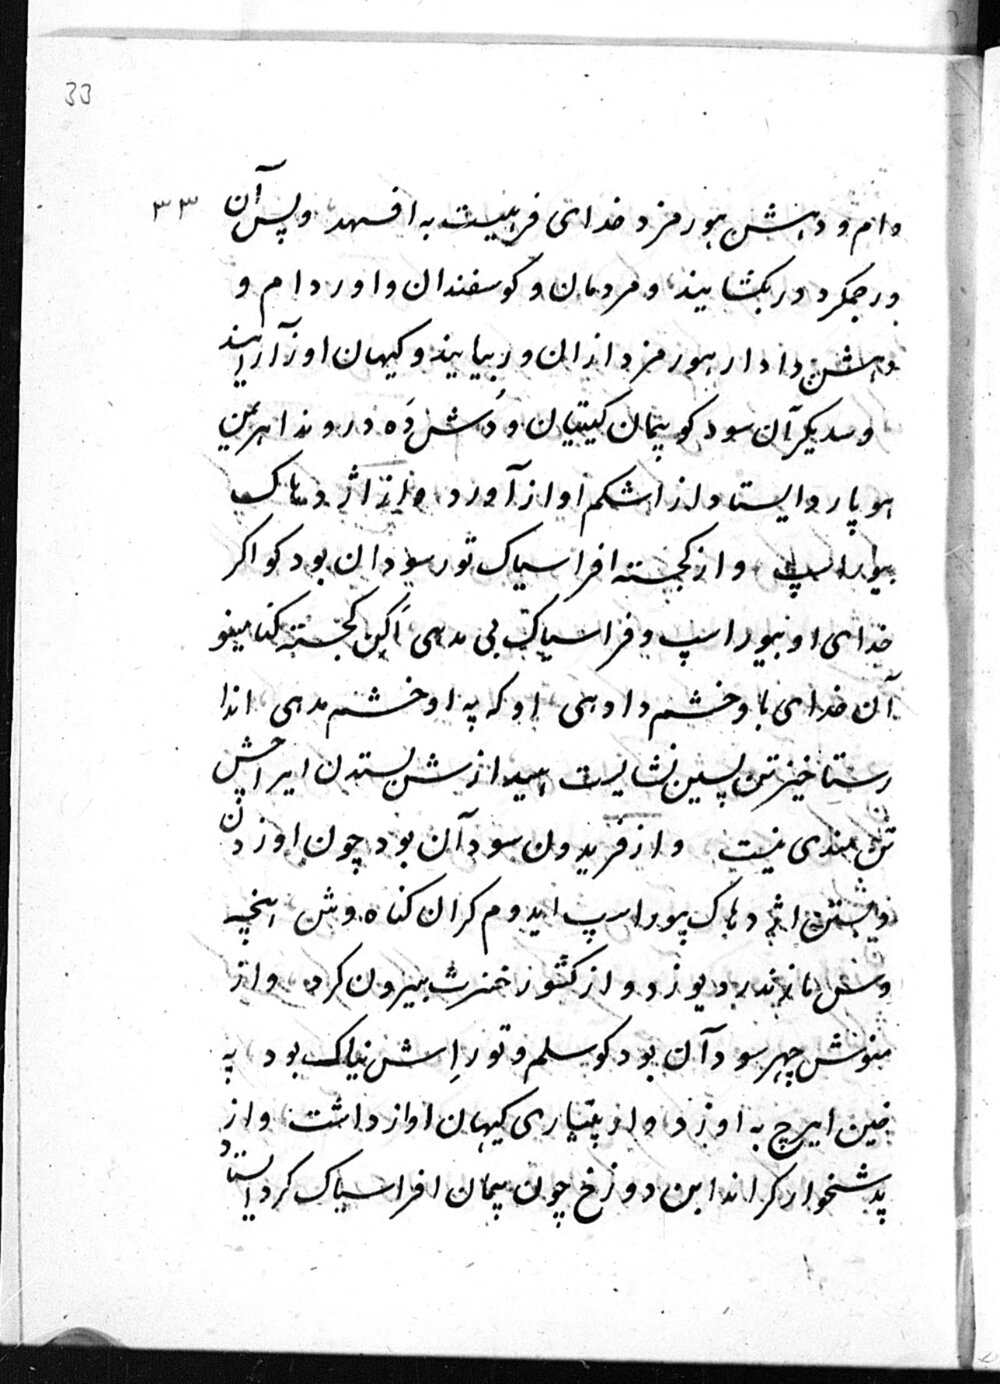 33
۳۳
دام و دهشن هورمزد خدای فرهیست به افسهد و پس آن
ورجمکرد در بکشایند و مردمان و کوسفندان و اور دام و
دهشن دادار هورمزد ازان ور بیایند و کیهان اوز آرایند
و سدیکر آن سود کو پیمان کیتیان و دُش دَه دروند اهرمن
هو پار و ایستاد از اشکم اواز آورد و از اژ دهاک
بیوراسپ و از کجسته افراسیاک تور سود ان بود کو اکر
خدای او بیوراسپ و فراسیاک بی مدهی اَکِن کجسته کنامینو
آن خدای با و خشم دادهی او که په او خشم مدهی اندا
رستاخیز تن پسین نشایست از ش ستدن ایراچش
تن مندی نیست و از فریدون سود آن بود چون اوزدن
و بستن اژدهاک پوراسپ ایدوم کران کناه وش اینچه
وش مازندر دیو زد و از کشور خنرث بیرون کرد و از
منوش چهر سود آن بود کو سلم و تور اِش نیاک بود په
خین ایرچ به اوزد و از پتیاری کیهان اواز داشت و از
پدشخوارکر اندا بن دوزخ چون پیمان افراسیاک کرد ایستاد